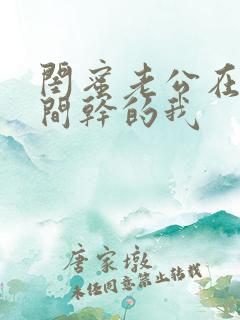 閨蜜老公在
間幹的我
唐家墩
未经同意禁止转载